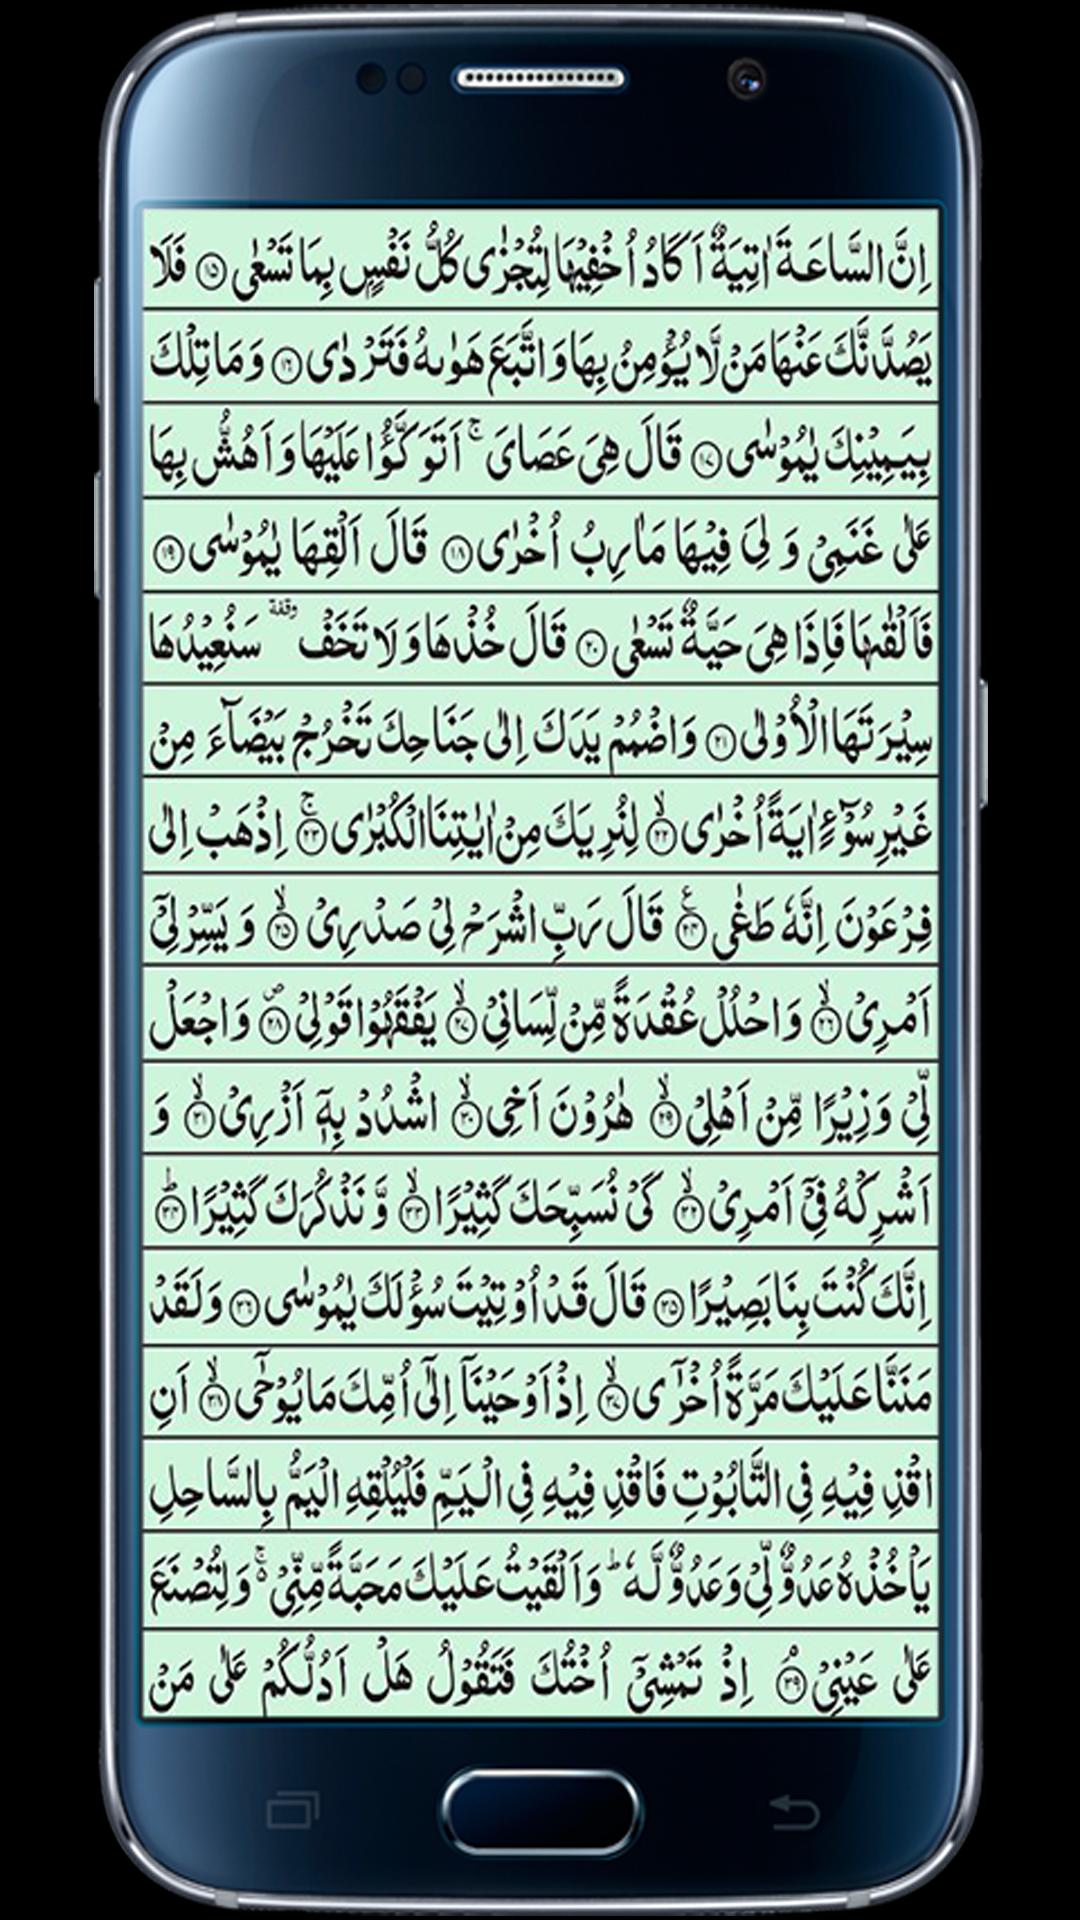 اِنَّ السَّاعَةَ اٰتِيَةٌ اَكَادُ اُخْفِيْهَا لِتُجْزٰى كُلُّ نَفْسٍۭ بِمَا تَسْعٰى ۝۱۵ فَلَا
يَصُدَّنَّكَ عَنْهَا مَنْ لَّا يُؤْمِنُ بِهَا وَاتَّبَعَ هَوٰىهُ فَتَرْدٰى ۝۱۶ وَمَا تِلْكَ
بِيَمِيْنِكَ يٰمُوْسٰى ۝۱۷ قَالَ هِىَ عَصَاىَ ۚ اَتَوَكَّؤُا عَلَيْهَا وَاَهُشُّ بِهَا
عَلٰى غَنَمِىْ وَ لِىَ فِيْهَا مَاٰرِبُ اُخْرٰى ۝۱۸ قَالَ اَلْقِهَا يٰمُوْسٰى ۝۱۹
فَاَلْقٰىهَا فَاِذَا هِىَ حَيَّةٌ تَسْعٰى ۝۲۰ قَالَ خُذْهَا وَلَا تَخَفْ وقفة سَنُعِيْدُهَا
سِيْرَتَهَا الْاُوْلٰى ۝۲۱ وَاضْمُمْ يَدَكَ اِلٰى جَنَاحِكَ تَخْرُجْ بَيْضَآءَ مِنْ
غَيْرِ سُوْٓءٍ اٰيَةً اُخْرٰى ۙ۝۲۲ لِنُرِيَكَ مِنْ اٰيٰتِنَا الْكُبْرٰى ۚ۝۲۳ اِذْهَبْ اِلٰى
فِرْعَوْنَ اِنَّهٗ طَغٰى ۝۲۴ قَالَ رَبِّ اشْرَحْ لِىْ صَدْرِىْ ۙ۝۲۵ وَ يَسِّرْ لِىْٓ
اَمْرِىْ ۙ۝۲۶ وَاحْلُلْ عُقْدَةً مِّنْ لِّسَانِىْ ۙ۝۲۷ يَفْقَهُوْا قَوْلِىْ ۝۲۸ وَاجْعَلْ
لِّىْ وَزِيْرًا مِّنْ اَهْلِىْ ۙ۝۲۹ هٰرُوْنَ اَخِى ۙ۝۳۰ اشْدُدْ بِهٖٓ اَزْرِىْ ۙ۝۳۱ وَ
اَشْرِكْهُ فِىْٓ اَمْرِىْ ۙ۝۳۲ كَىْ نُسَبِّحَكَ كَثِيْرًا ۙ۝۳۳ وَّ نَذْكُرَكَ كَثِيْرًا ؕ۝۳۴
اِنَّكَ كُنْتَ بِنَا بَصِيْرًا ۝۳۵ قَالَ قَدْ اُوْتِيْتَ سُؤْلَكَ يٰمُوْسٰى ۝۳۶ وَلَقَدْ
مَنَنَّا عَلَيْكَ مَرَّةً اُخْرٰٓى ۙ۝۳۷ اِذْ اَوْحَيْنَآ اِلٰٓى اُمِّكَ مَا يُوْحٰٓى ۙ۝۳۸ اَنِ
اقْذِفِيْهِ فِى التَّابُوْتِ فَاقْذِفِيْهِ فِى الْيَمِّ فَلْيُلْقِهِ الْيَمُّ بِالسَّاحِلِ
يَاْخُذْهُ عَدُوٌّ لِّىْ وَعَدُوٌّ لَّهٗ ؕ وَاَلْقَيْتُ عَلَيْكَ مَحَبَّةً مِّنِّىْ ۚ وَلِتُصْنَعَ
عَلٰى عَيْنِىْ ۝۳۹ اِذْ تَمْشِىْٓ اُخْتُكَ فَتَقُوْلُ هَلْ اَدُلُّكُمْ عَلٰى مَنْ